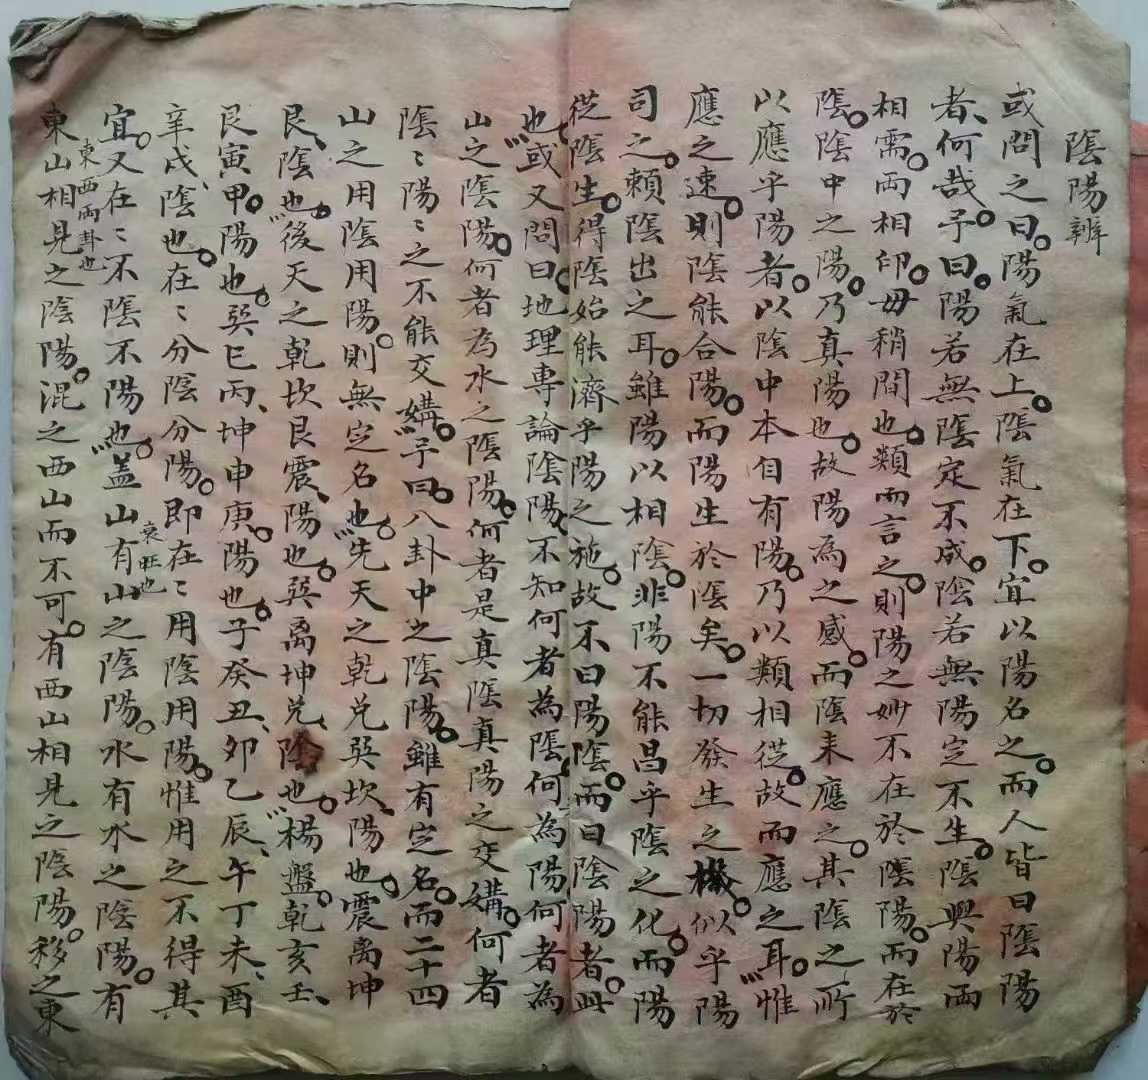 陰陽辨
或問之曰。陽氣在上。陰氣在下。宜以陽名之。而人皆曰陰陽
者、何哉。予曰。陽若無陰定不成。陰若無陽定不生。陰與陽兩
相需。兩相印。毋稍間也。類而言之。則陽之妙不在於陰陽。而在於
陰。陰中之陽。乃真陽也。故陽為之感。而陰来應之。其陰之所
以應乎陽者。以陰中本自有陽。乃以類相從。故而應之耳。惟
應之速。則陰能合陽。而陽生於陰矣。一切發生之機。似乎陽
司之。賴陰出之耳。雖陽以相陰。非陽不能昌乎陰之化。而陽
從陰生。得陰始能濟乎陽之施。故不曰陽陰。而曰陰陽者。此
也。或又問曰。地理專論陰陽、不知何者為陰、何為陽、何者為
山之陰陽。何者為水之陰陽。何者是真陰真陽之交媾。何者
陰〻陽〻之不能交媾。予曰。八卦中之陰陽。雖有定名。而二十四
山之用陰用陽。則無定名也。先天之乾兌巽坎、陽也。震离坤
艮、陰也。後天之乾坎艮震、陽也。巽离坤兌、陰也。楊盤。乾亥壬、
艮寅甲。陽也。巽巳丙、坤申庚。陽也。子癸丑、夘乙辰、午丁未、酉
辛戌、陰也。在〻分陰分陽。即在〻用陰用陽。惟用之不得其
宜。又在〻不陰不陽也。盖山有山之陰陽。水有水之陰陽。有
衰旺也
東山相見之陰陽。混之西山而不可。有西山相見之陰陽。移之東
東西兩卦也